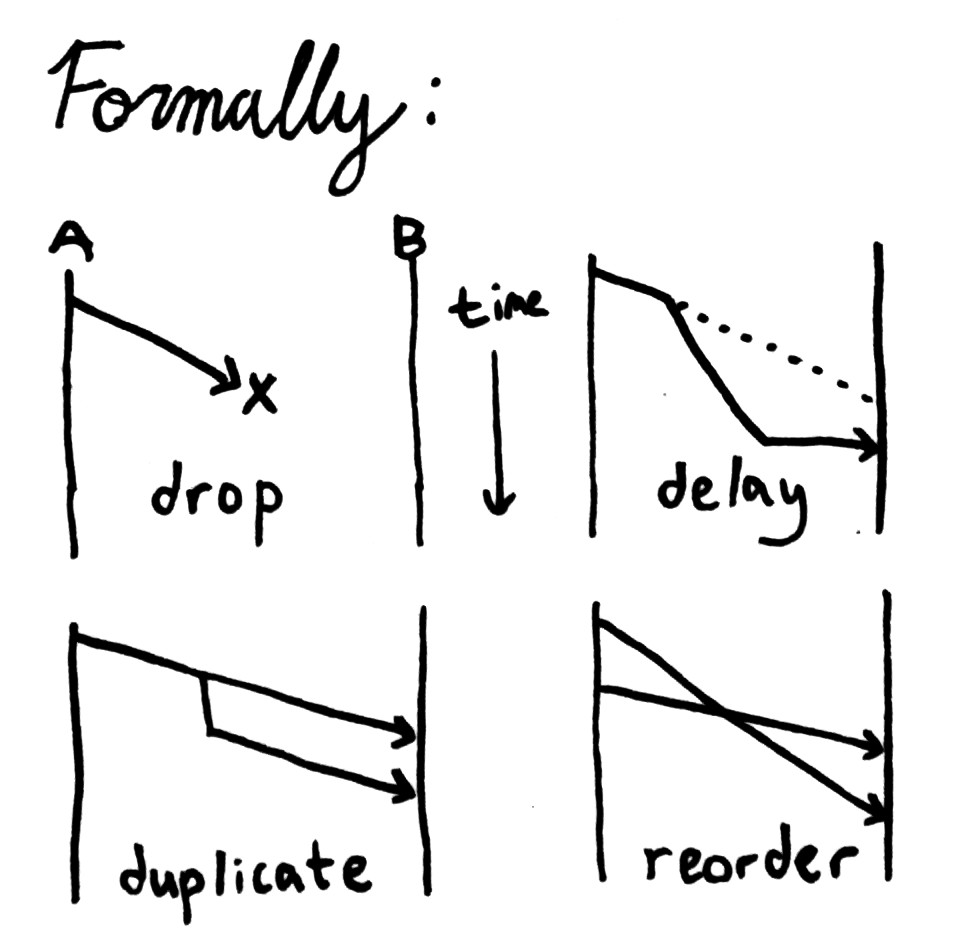 Formally:
A
B
time
X
drop
delay
duplicate
reorder